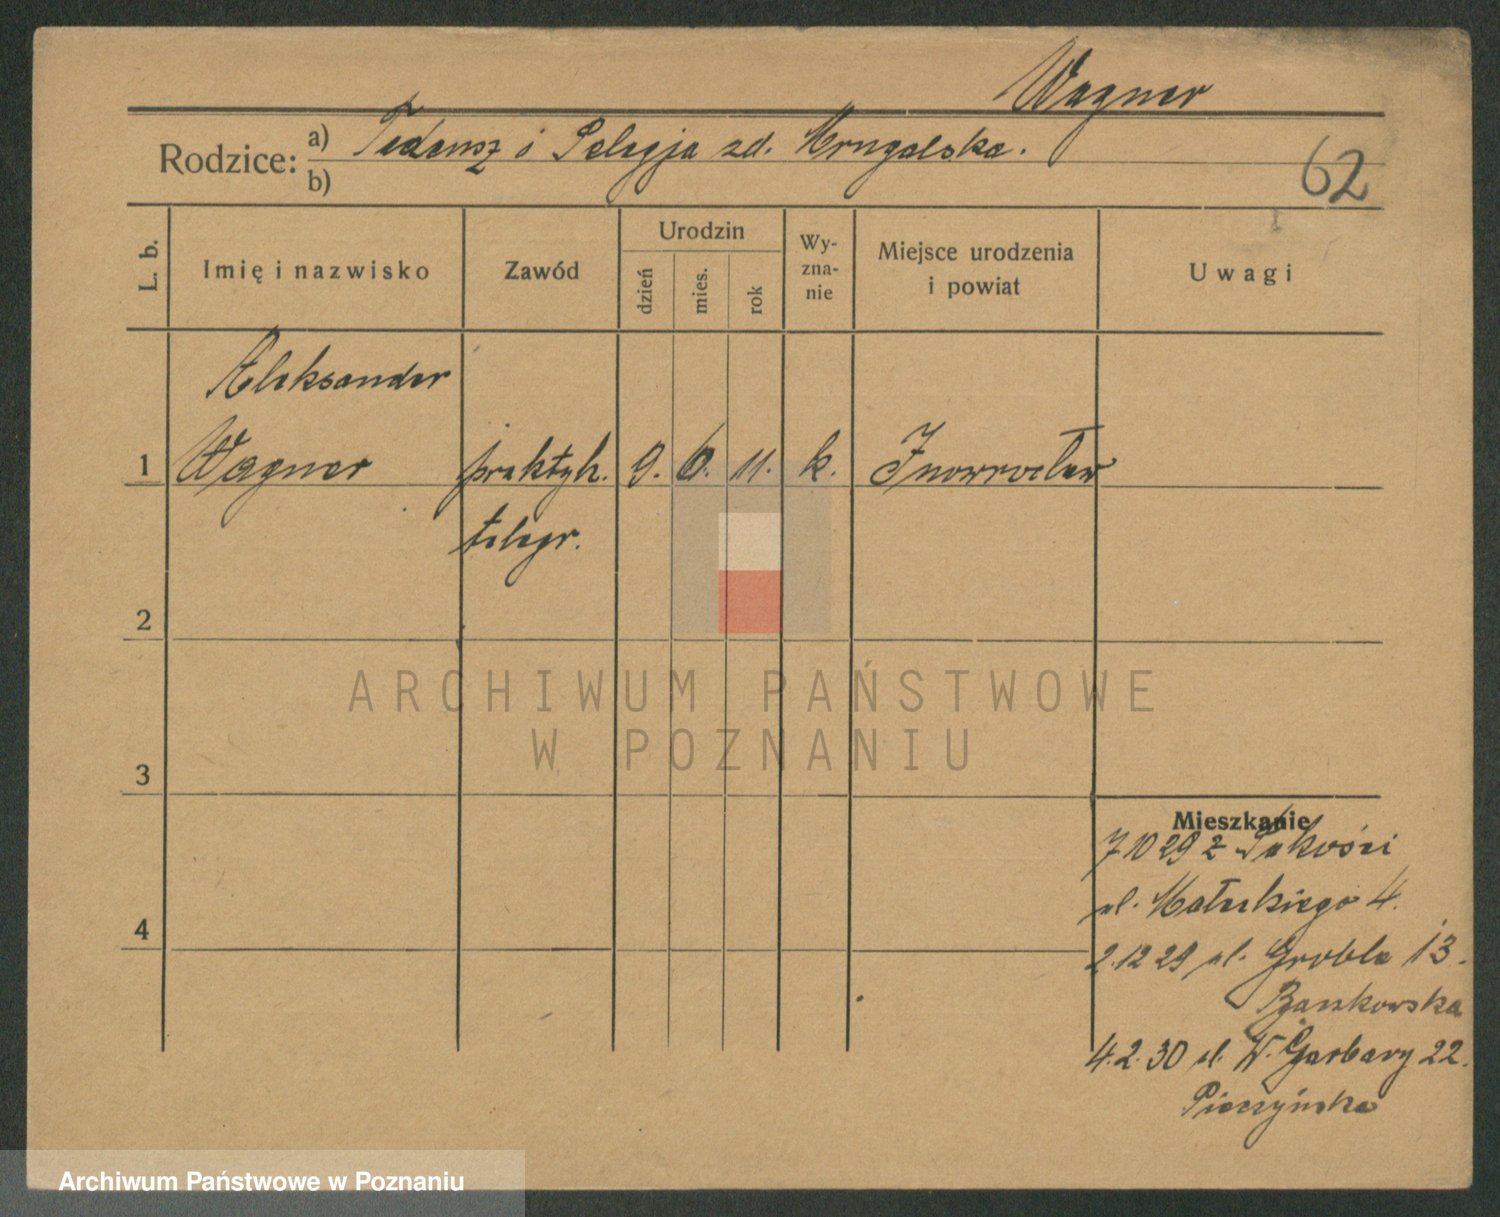 Wagner
Rodzice: a) Tadeusz i Pelagja zd. Mrugalska.
b)
62
L. b.
Imię i nazwisko
Zawód
Urodzin
dzień
mies.
rok
Wy-
zna-
nie
Miejsce urodzenia
i powiat
Uwagi
Aleksander
1 Wagner praktyk. 9. 6. 11. k. Inowrocław
telegr.
2
ARCHIWUM PAŃSTWOWE
W POZNANIU
3
Mieszkanie
7 10 29 z Pakości
ul. Małeckiego 4.
4
2.12 29 ul. Grobla 13.
4.2.30 ul. W. Garbary 22.
Pieczyńska
Archiwum Państwowe w Poznaniu